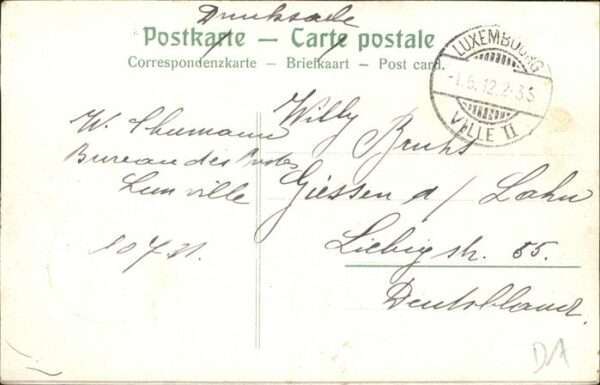 Drucksache
Postkarte — Carte postale
Correspondenzkarte — Briefkaart — Post card.
LUXEMBOURG
-1.5.12.2-3S
VILLE II
W. Schumann
Bureau des Postes
Lux ville
Willy Bruhs
Giessen a/Lahn
Liebigstr. 55.
Deutschland.
DA